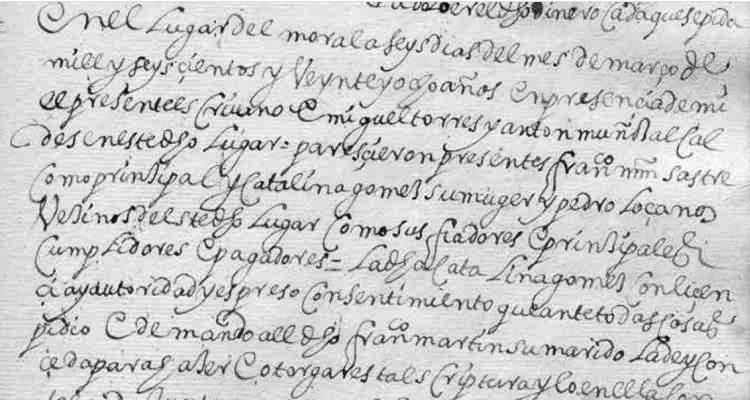 el dho dinero Cada que se pida
En el Lugar del moral a seys dias del mes de março de
mill y seyscientos y Veynte y ocho años en presencia de mi
el presente escrivano E miguel torres y anton muñoz al Cal
des en este dho Lugar = parescieron presentes franco mrn sastre
Como prinzipal y Catalina gomez su muger y pedro loçano
Vezinos del este dho Lugar Como sus fiadores E prinzipales
Cumplidores E pagadores = La dha Cata Lina gomez Con liçen
cia y autoridad y espreso Consentimiento que ante todas Cosas
pidio E demando a el dho franco martin su marido La de y Con
ceda para hazer E otorgar esta esCriptura y lo en ella Con